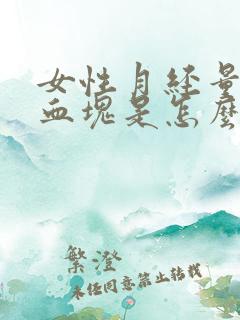 女性月经量
血块是怎么
繁澄
未经同意禁止转载